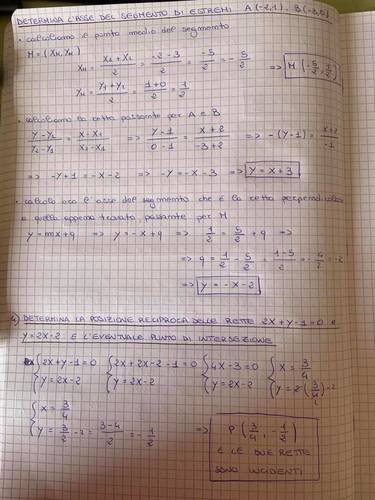 DETERMINA L'ASSE DEL SEGMENTO DI ESTREMI A(-2,1), B(-3,0)
• calcoliamo il punto medio del segmento
M = (X_M, Y_M)
X_M = (X_1 + X_2)/2 = (-2-3)/2 = -5/2 = -5/2 => M(-5/2, 1/2)
Y_M = (Y_1 + Y_2)/2 = (1+0)/2 = 1/2
• calcoliamo la retta passante per A e B
(Y-Y_1)/(Y_2-Y_1) = (X-X_1)/(X_2-X_1) => (Y-1)/(0-1) = (X+2)/(-3+2) => -(Y-1) = (X+2)/(-1)
=> -Y+1 = -X-2 => -Y = -X-3 => Y = X+3
• calcolo ora l'asse del segmento che è la retta perpendicolare
a quella appena trovata, passante per M
Y = mX+q => Y = -X+q => 1/2 = 5/2 + q =>
=> q = 1/2 - 5/2 = (1-5)/2 = -4/2 = -2
=> Y = -X-2
4) DETERMINA LA POSIZIONE RECIPROCA DELLE RETTE 2X+Y-1=0 E
Y=2X-2 E L'EVENTUALE PUNTO DI INTERSEZIONE
{2X+Y-1=0 {2X+2X-2-1=0 {4X-3=0 {X=3/4
{Y=2X-2 {Y=2X-2 {Y=2X-2 {Y=2(3/4)-2
{X=3/4
{Y=3/2-2=(3-4)/2=-1/2 => P(3/4, -1/2)
E LE DUE RETTE
SONO INCIDENTI